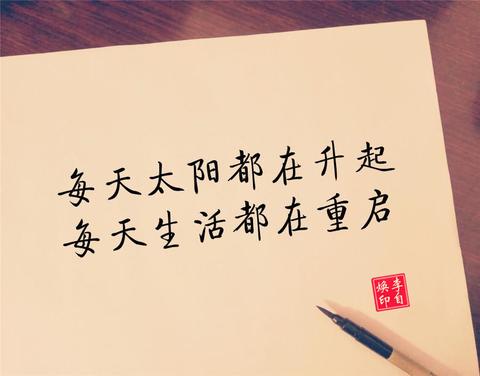 每天太阳都在升起
每天生活都在重启
李自
焕印